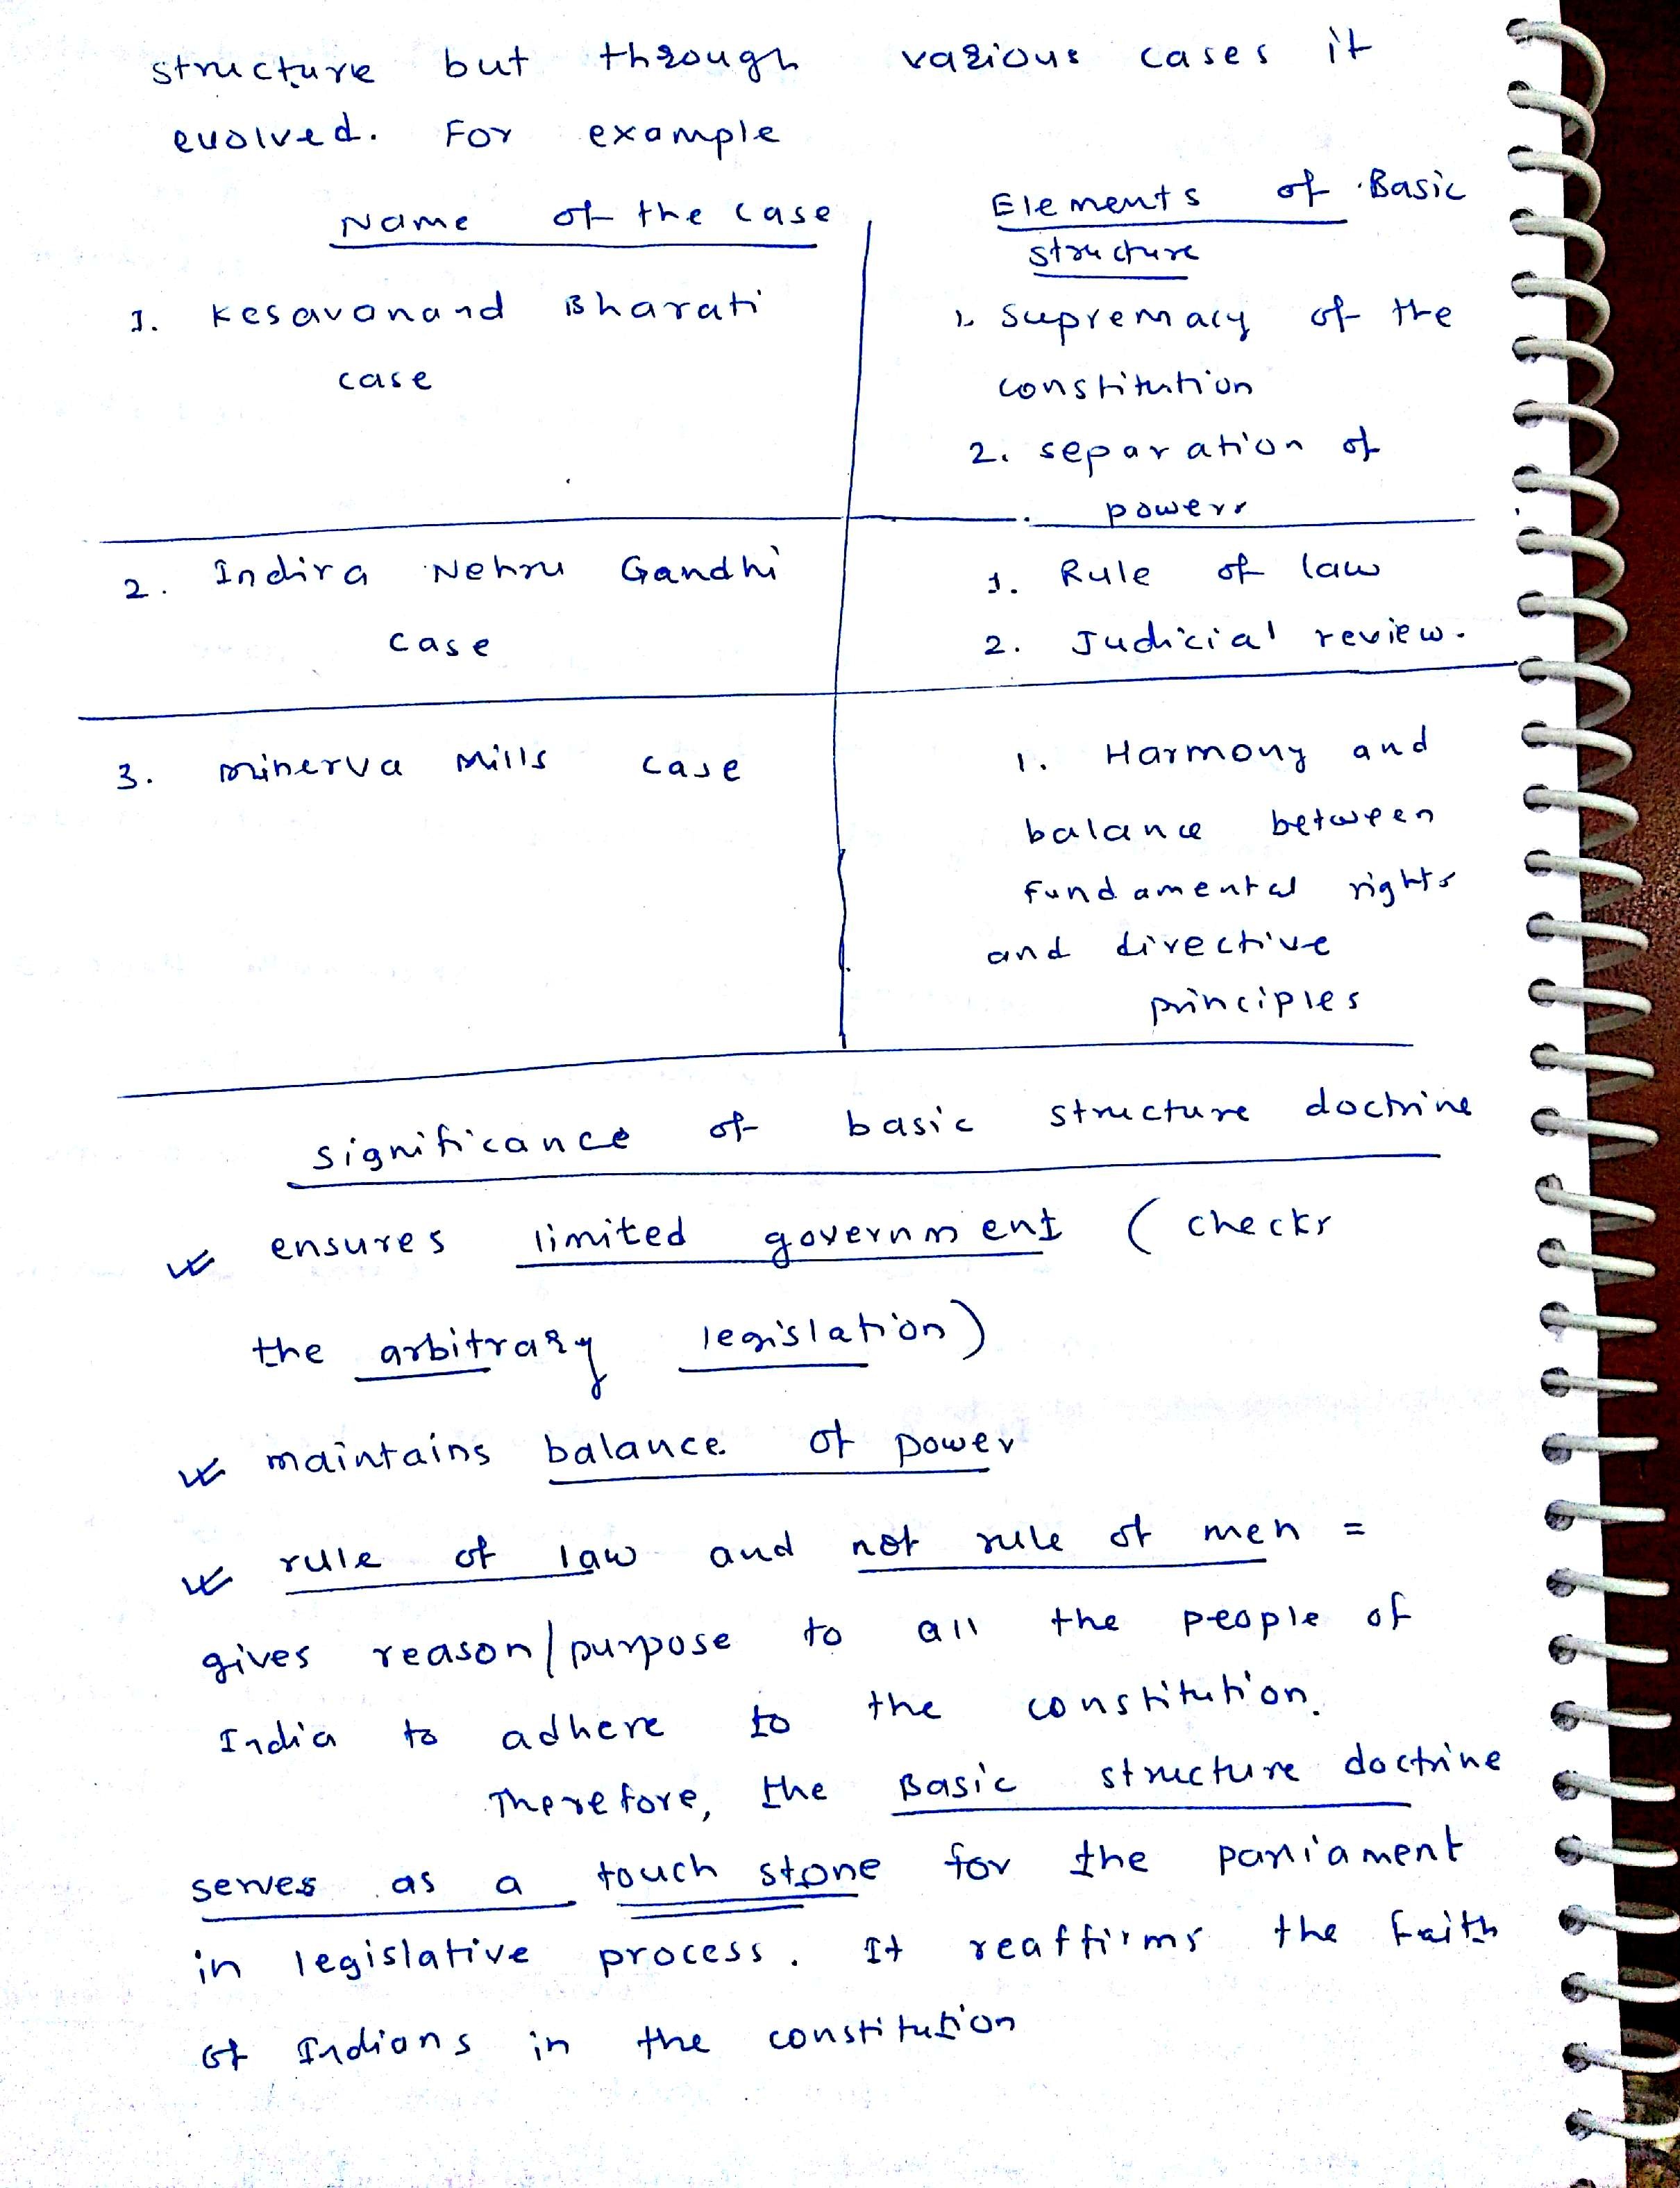 structure but through various cases it
evolved. For example
Name of the case
Elements of Basic
structure
1. Kesavanand Bharati
case
1. Supremacy of the
constitution
2. separation of
powers
2. Indira Nehru Gandhi
case
1. Rule of law
2. Judicial review.
3. Minerva Mills case
1. Harmony and
balance between
Fundamental rights
and directive
principles
significance of basic structure doctrine
ensures limited government ( checks
the arbitrary legislation)
maintains balance of power
rule of law and not rule of men =
gives reason/purpose to all the people of
India to adhere to the constitution.
Therefore, the Basic structure doctrine
serves as a touch stone for the parliament
in legislative process. It reaffirms the faith
of Indians in the constitution